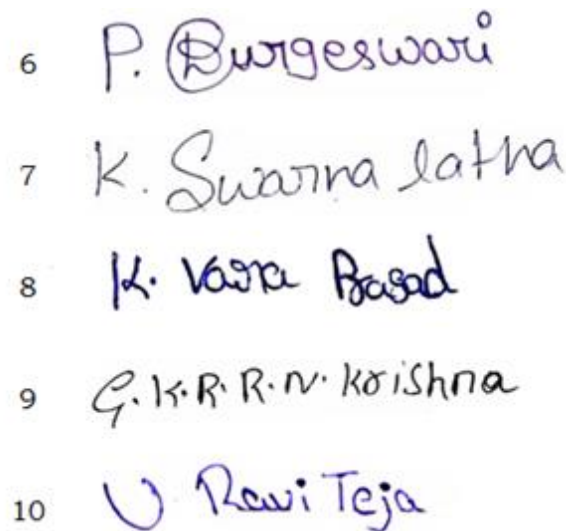 6 P. Durgeswari
7 K. Swarna latha
8 K. Vara Prasad
9 G.K.R.R.N. Krishna
10 U Ravi Teja